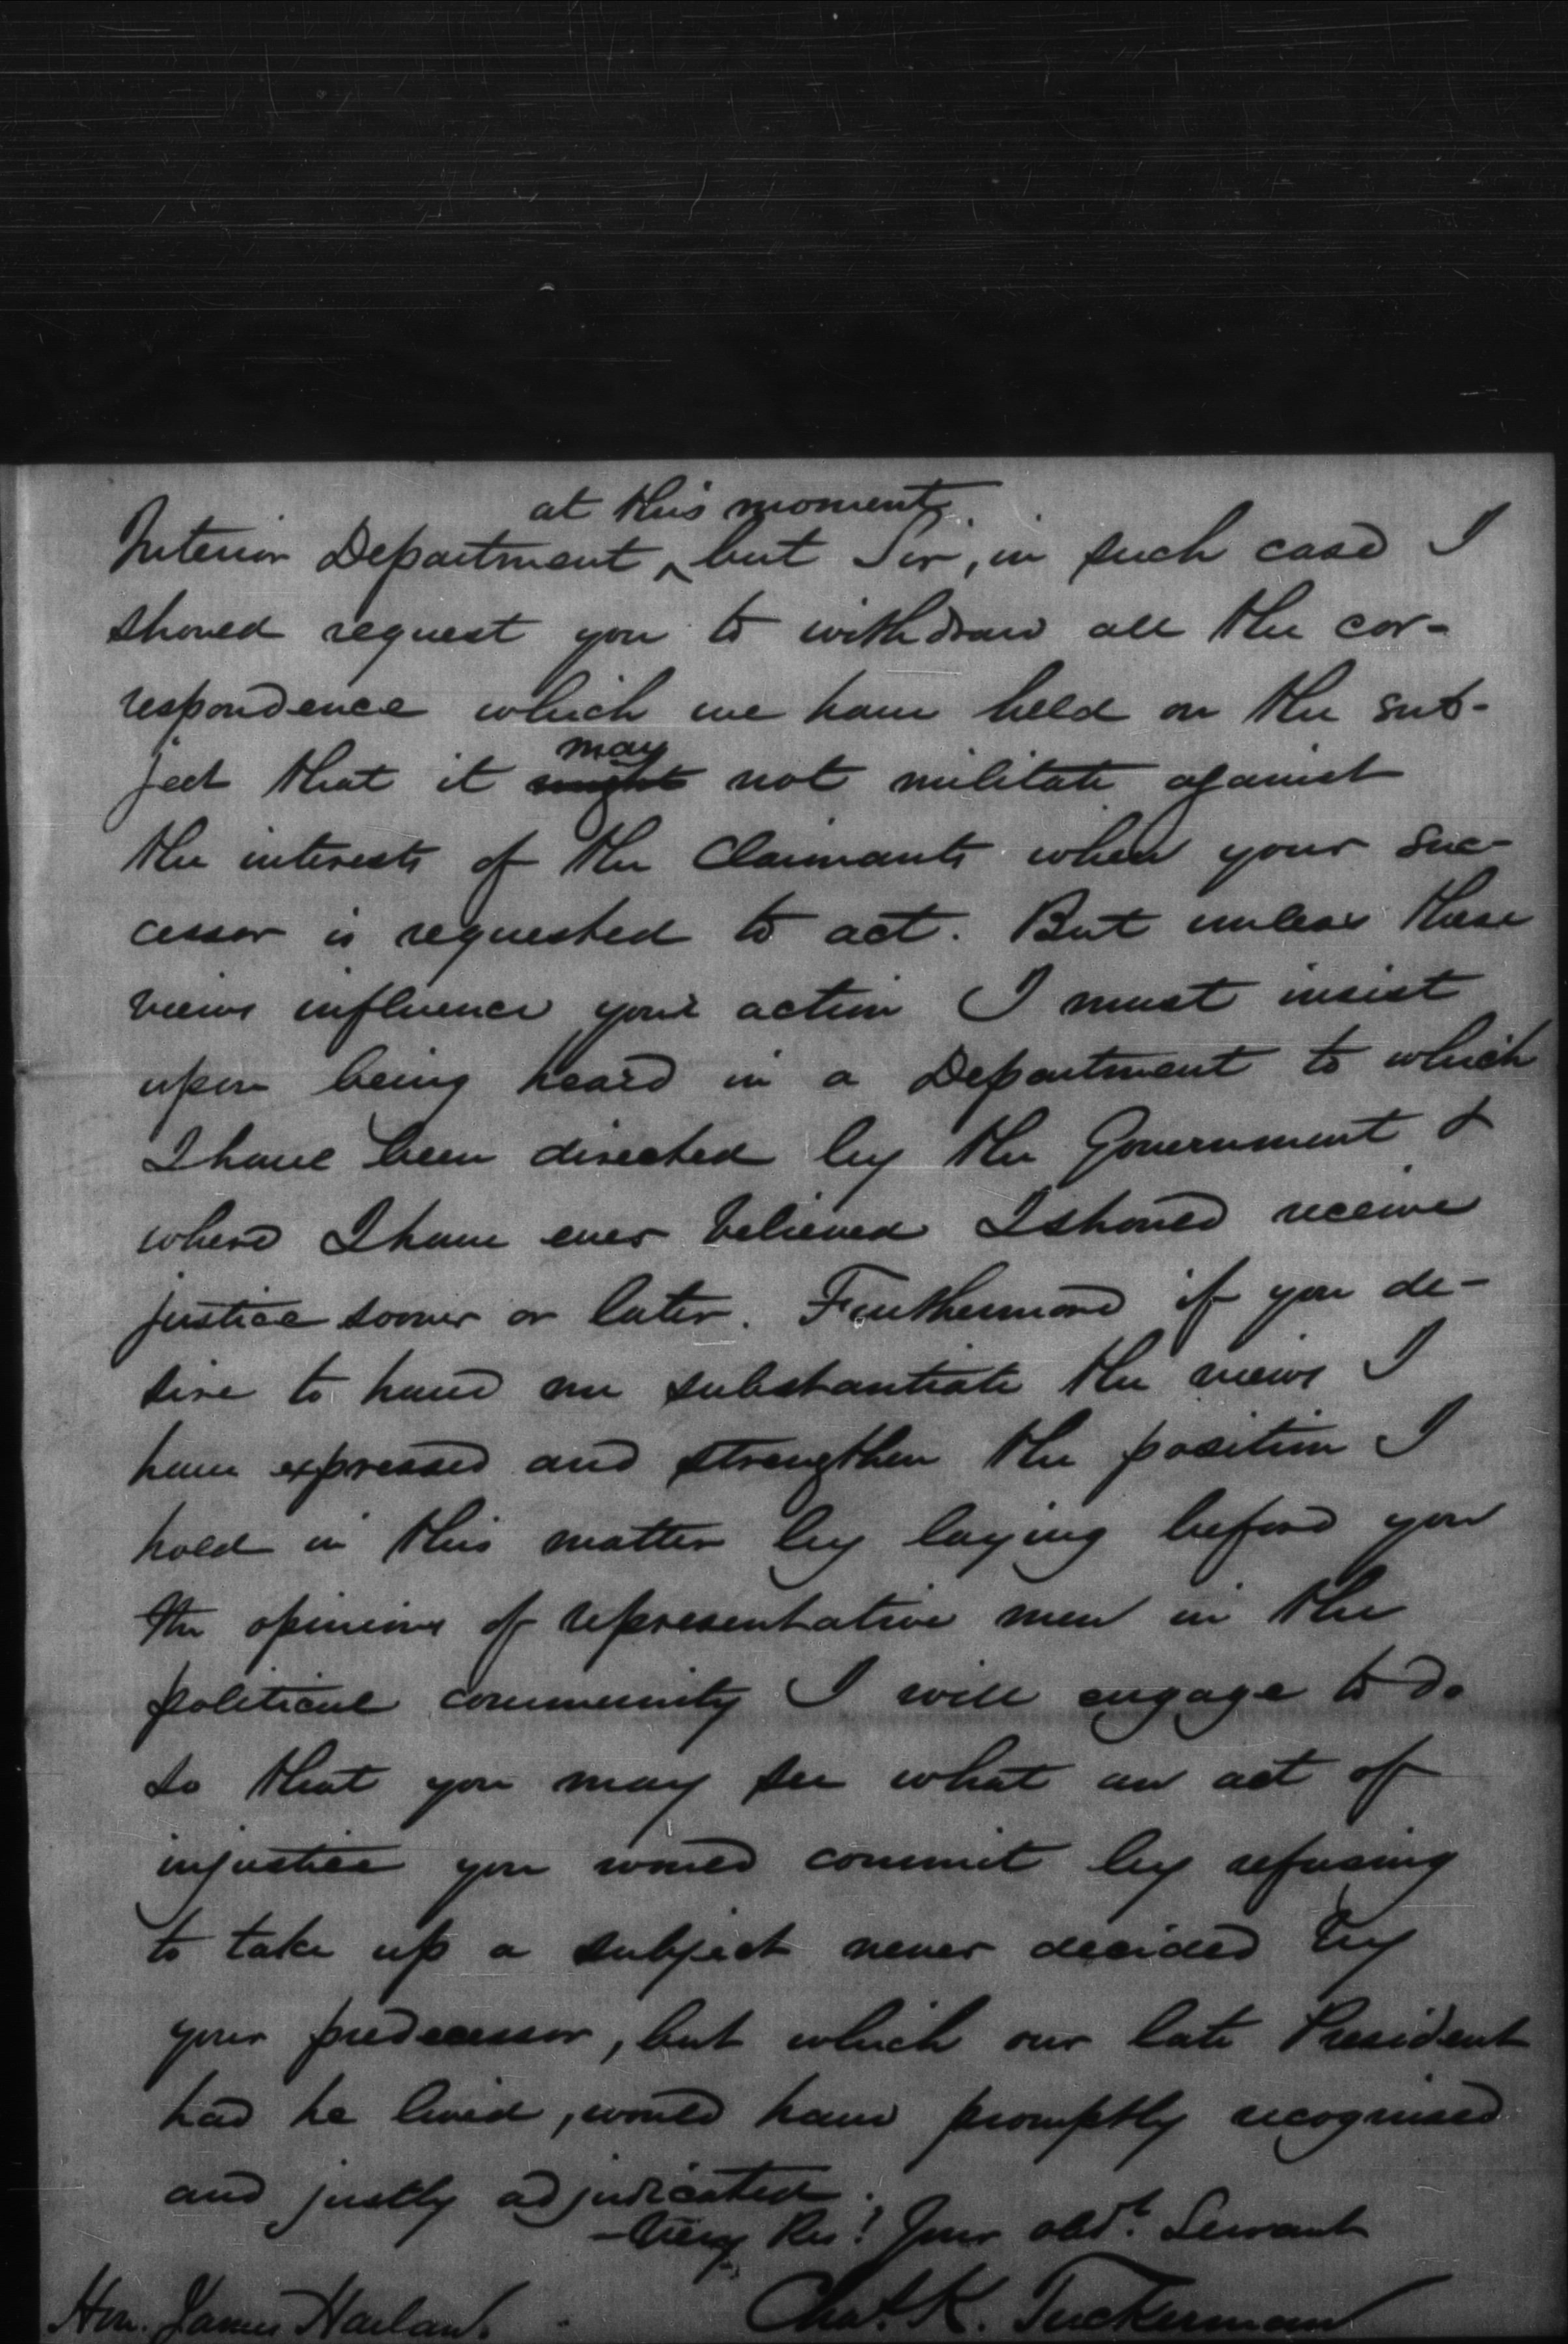 at this moment,
Interior Department ‸ but Sir, in such case I
should request you to withdraw all the cor-
respondence which we have held on the sub-
may
ject that it might not militate against
the interests of the Claimants when your suc-
cessor is requested to act. But unless these
views influence your action I must insist
upon being heard in a Department to which
I have been directed by the Government &
where I have ever believed I should receive
justice sooner or later. Furthermore if you de-
sire to have me substantiate the views I
have expressed and strengthen the position I
hold in this matter by laying before you
the opinions of representative men in the
political community I will engage to do
so that you may see what an act of
injustice you would commit by refusing
to take up a subject never decided by
your predecessor, but which our late President
had he lived, would have promptly recognised
and justly adjudicated.
Very Res! Your obdt. Servant
Hon. James Harlan. Chas. K. Tuckerman